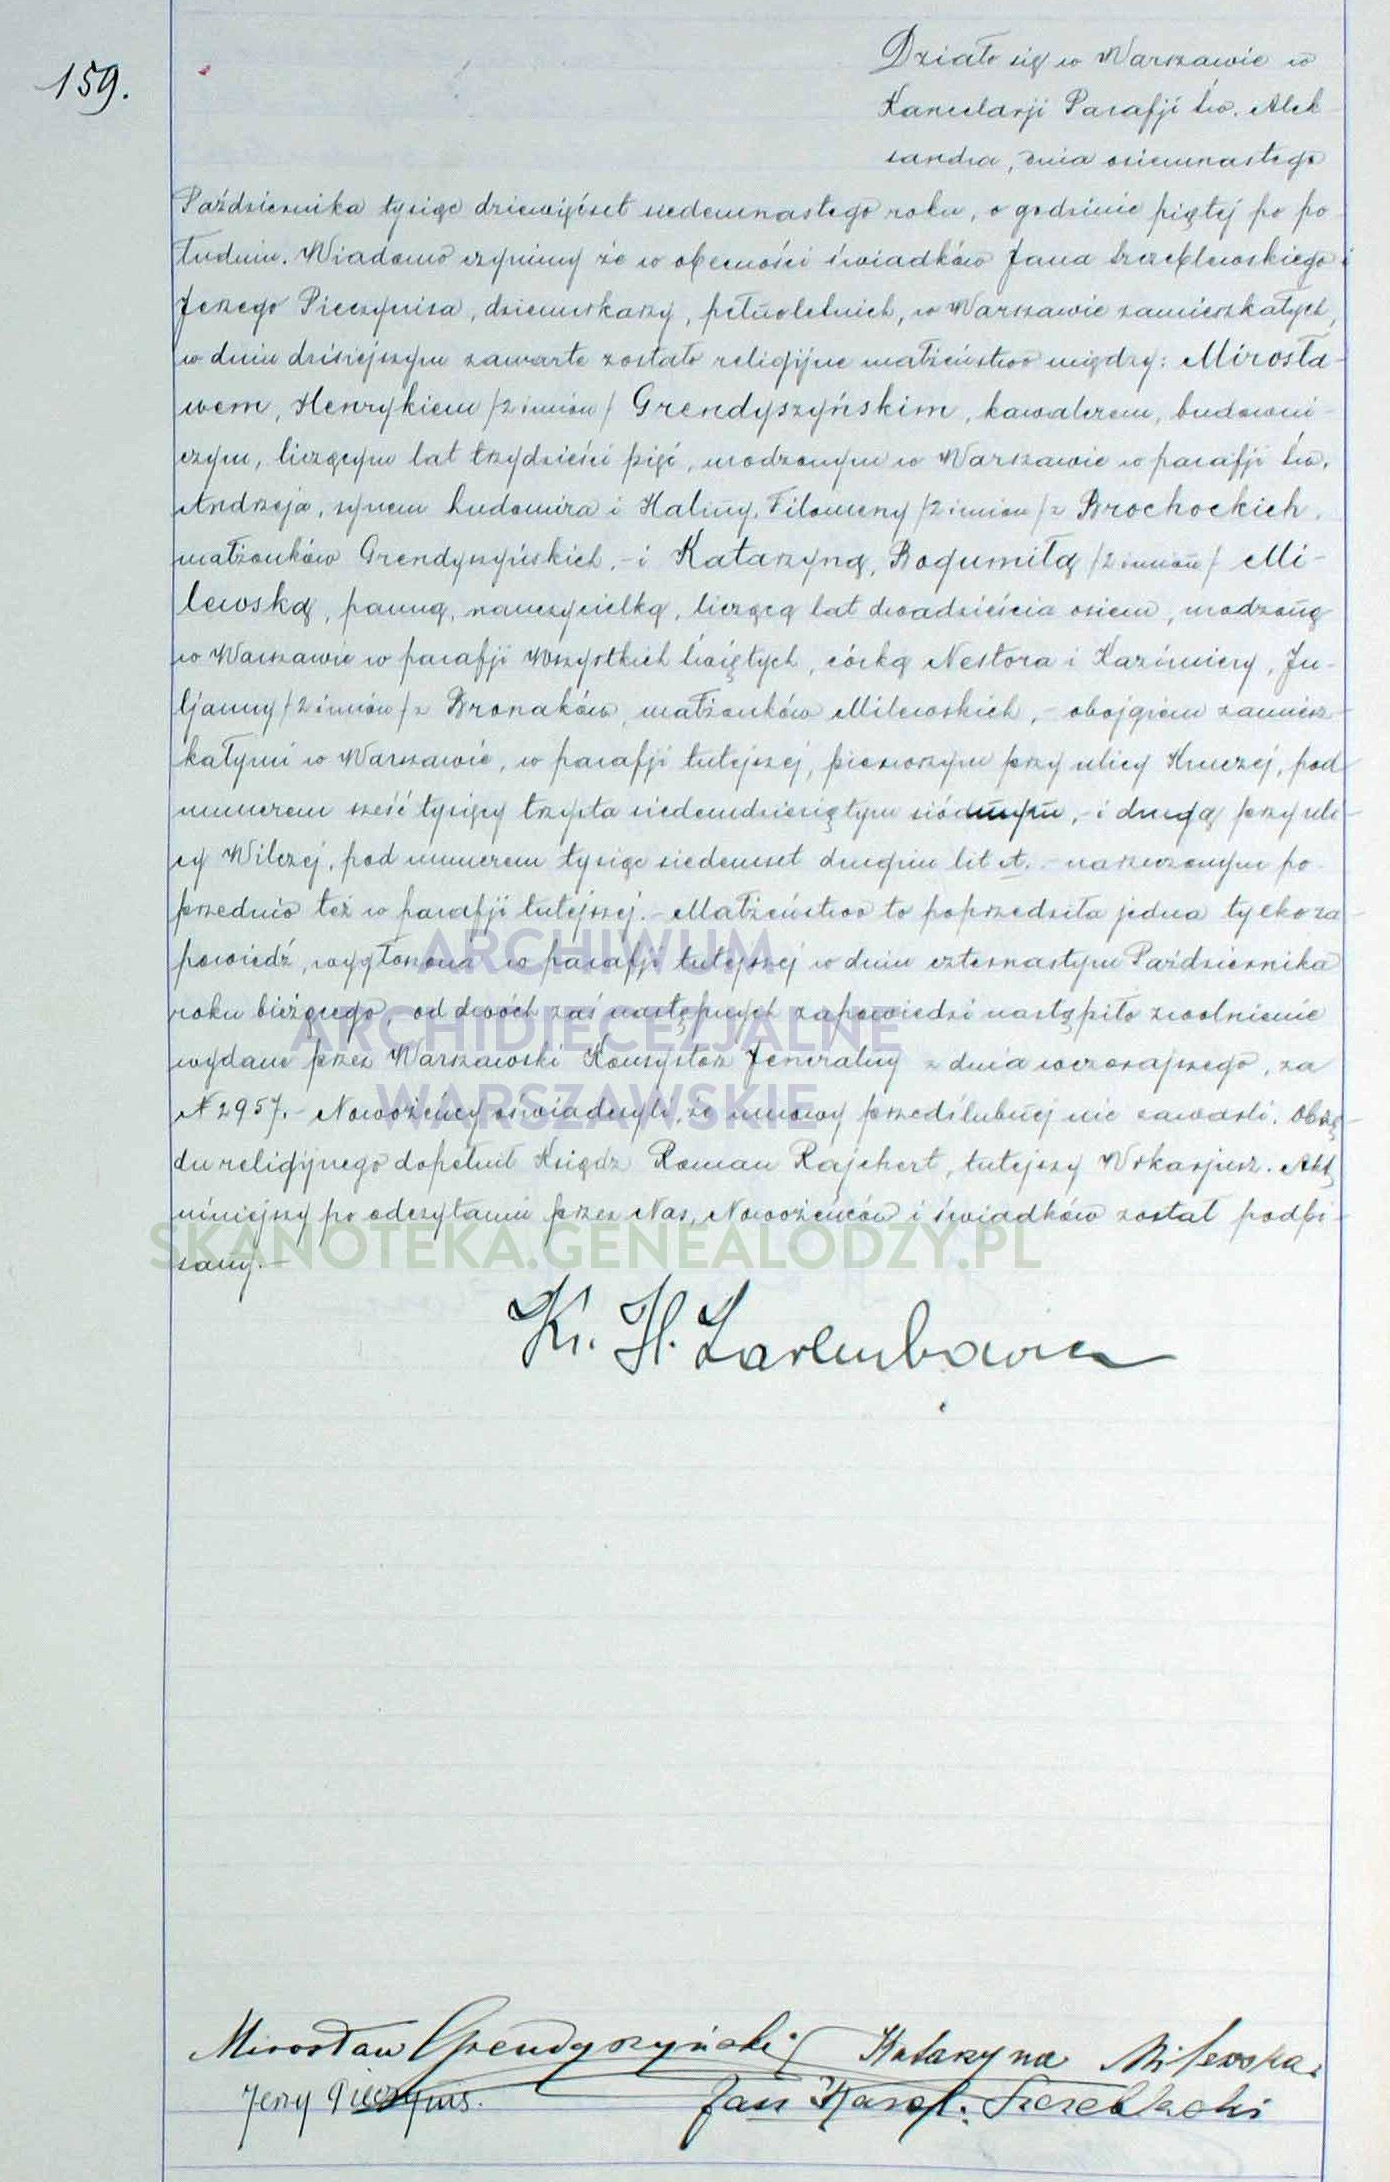 159.
Działo się w Warszawie w
Kancelarji Parafji Św. Alek
sandra, dnia osiemnastego
Października tysiąc dziewięćset siedemnastego roku, o godzinie piątej po po
łudniu. Wiadomo czynimy że w obecności świadków Jana Szczeblewskiego i
Jerzego Pieczynisa, dziennikarzy, pełnoletnich, w Warszawie zamieszkałych,
w dniu dzisiejszym zawarte zostało religijne małżeństwo między: Mirosła-
wem, Henrykiem /2 imion/ Grendyszyńskim, kawalerem, budowni-
czym, liczącym lat trzydzieści pięć, urodzonym w Warszawie w parafji Św.
Andrzeja, synem Ludomira i Haliny, Filomeny /2 imion/ z Brochockich,
małżonków Grendyszyńskich, - i Katarzyną, Bogumiłą /2 imion/ Mi-
lewską, panną, nauczycielką, liczącą lat dwadzieścia osiem, urodzoną
w Warszawie w parafji Wszystkich Świętych, córką Nestora i Kazimiery, Ju-
ljanny /2 imion/ z Bronaków, małżonków Milewskich, - obojgiem zamiesz-
kałymi w Warszawie, w parafji tutejszej, pierwszym przy ulicy Kruczej, pod
numerem sześć tysięcy trzysta siedemdziesiątym siódmym, - i drugą przy uli-
cy Wilczej, pod numerem tysiąc siedemset drugim lit A. - narzeczonym po
przednio też w parafji tutejszej. - Małżeństwo to poprzedziła jedna tylko za-
powiedź, wygłoszona w parafji tutejszej w dniu czternastym Października
roku bieżącego, od dwóch zaś następnych zapowiedzi nastąpiło zwolnienie
wydane przez Warszawski Konsystorz Jeneralny z dnia wczorajszego, za
N 2957. - Nowożeńcy oświadczyli, że umowy przedślubnej nie zawarli. Obrzę-
du religijnego dopełnił Ksiądz Roman Rajchert, tutejszy Wikarjusz. Akt
niniejszy po odczytaniu przez Nas, Nowożeńców i świadków został podpi-
sany. -
ARCHIWUM
ARCHIDIECEZJALNE
WARSZAWSKIE
SKANOTEKA.GENEALODZY.PL
Ks. H.
Mirosław Grendyszyński Katarzyna Milewska
Jerzy Pieczynis. Jan Karol